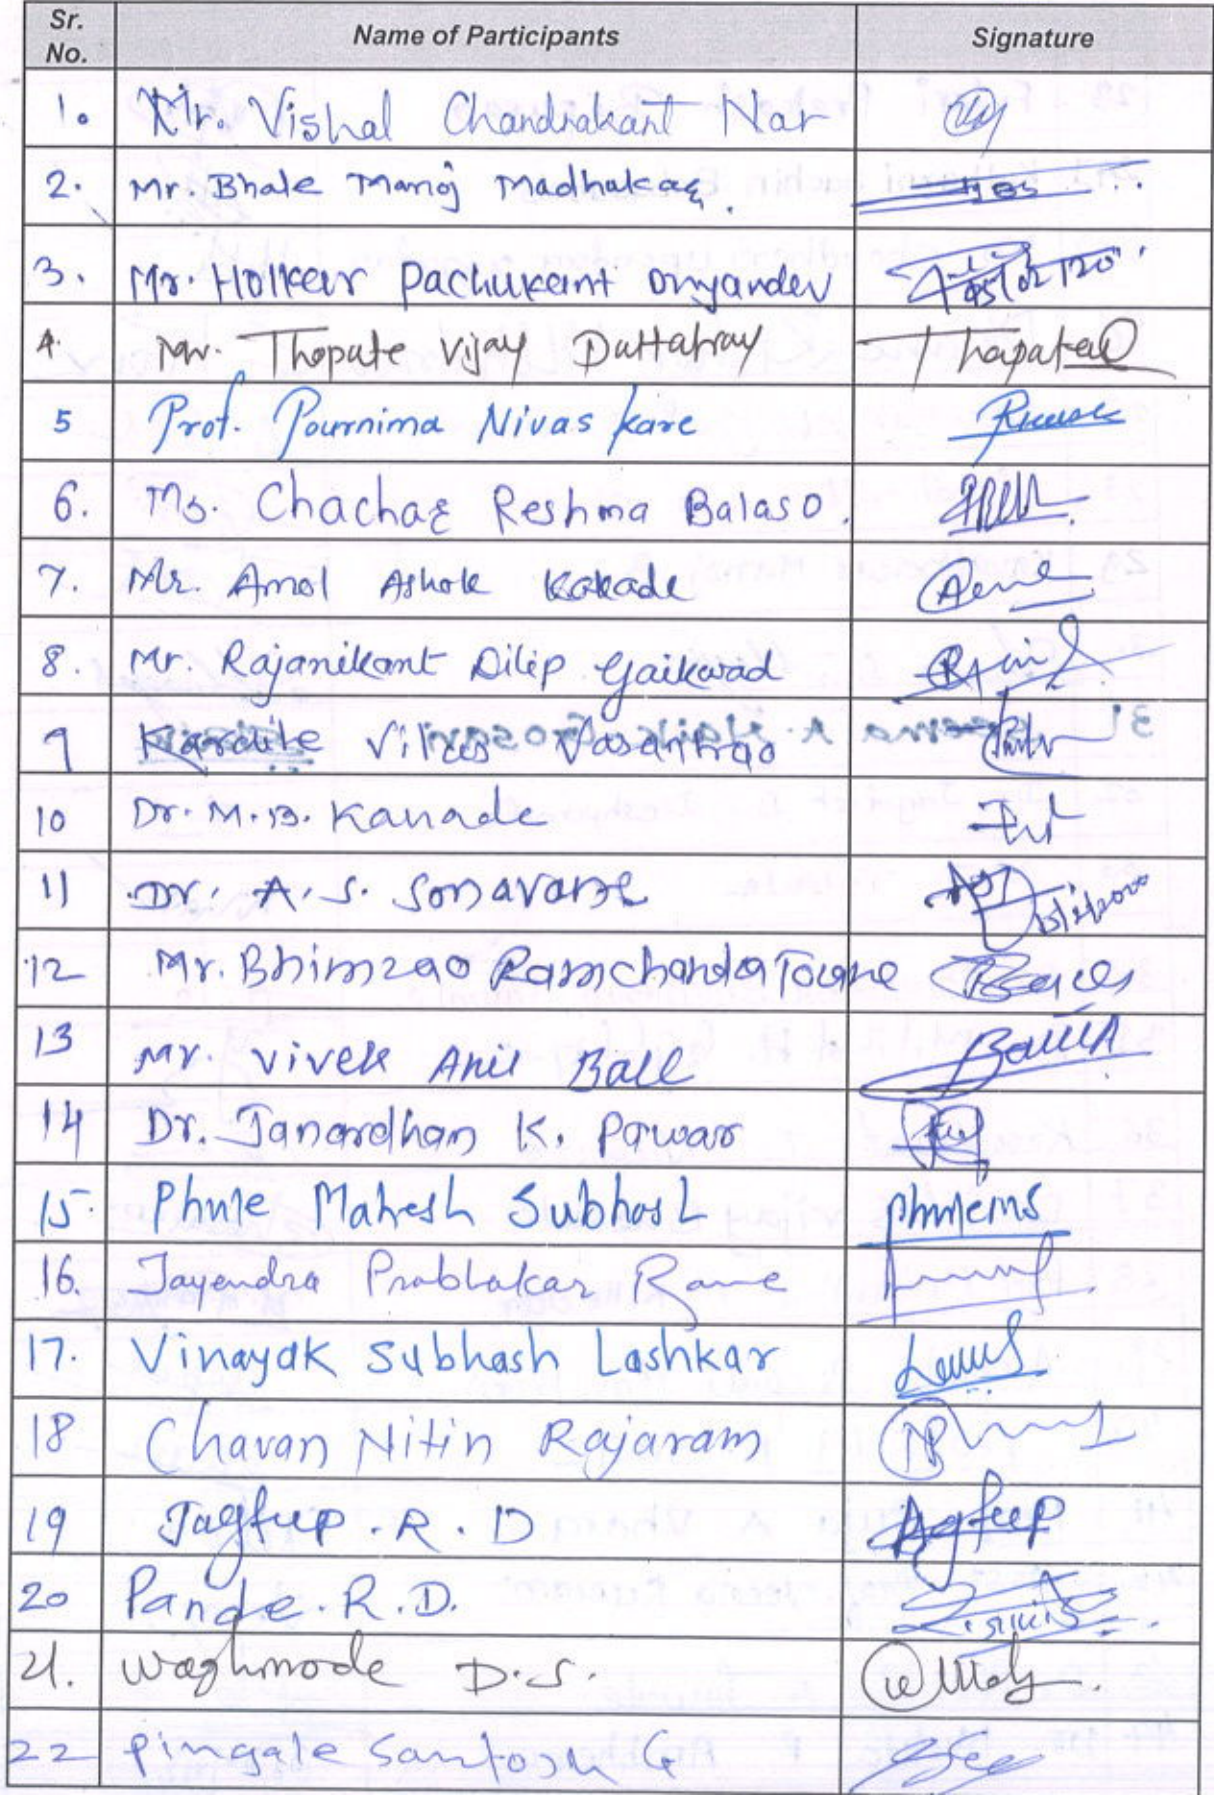 Sr. No. Name of Participants Signature
1. Mr. Vishal Chandrakant Nar
2. Mr. Bhale Manoj Madhakar.
3. Mr. Holkar Pachukant Dnyandev
4. Mr. Thopate Vijay Dattatray Thopate
5 Prof. Pournima Nivas Kare
6. Ms. Chachar Reshma Balaso.
7. Mr. Amol Ashok Kakade
8. Mr. Rajanikant Dilip Gaikwad
9 Kardile Vilas Vasantrao
10 Dr. M. B. Kanade
11 Dr. A. S. Sonavane
12 Mr. Bhimrao Ramchandra Towne
13 Mr. Vivek Anil Ball
14 Dr. Janardhan K. Pawar
15. Phule Mahesh Subhash phulems
16. Jayendra Prabhakar Rane
17. Vinayak Subhash Lashkar
18 Chavan Nitin Rajaram
19 Jagtup . R . D
20 Pande. R. D.
21. Waghmode D.S.
22 Pingale Santosh G